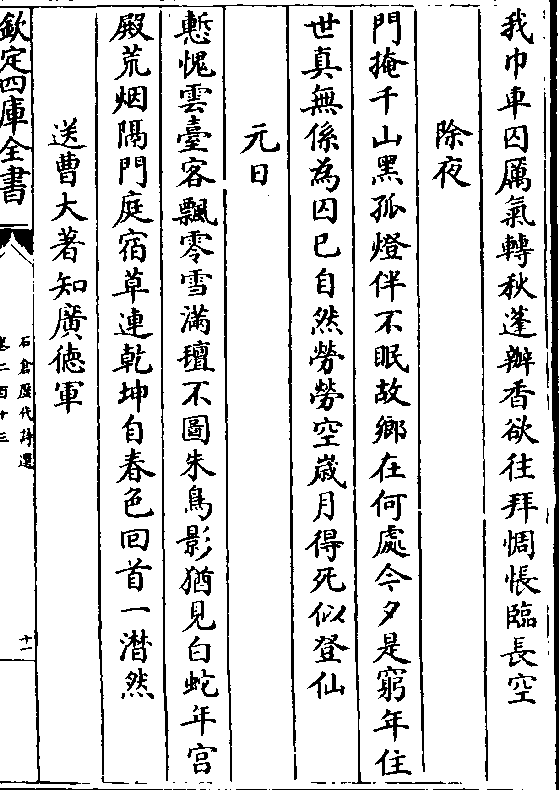 我巾車囚厲氣轉秋蓬辦香欲往拜惆悵臨長空
除夜
門掩千山黑孤燈伴不眠故鄉在何處今夕是窮年住
世真無係為囚已自然勞勞空嵗月得死似登仙
元日
慙愧雲臺客飄零雪滿氊不圖朱鳥影猶見白蛇年宫
殿荒烟隔門庭宿草連乾坤自春色回首一潸然
送曹大著知廣徳軍
欽定四庫全書
石倉歷代詩選
卷二百十三
十一